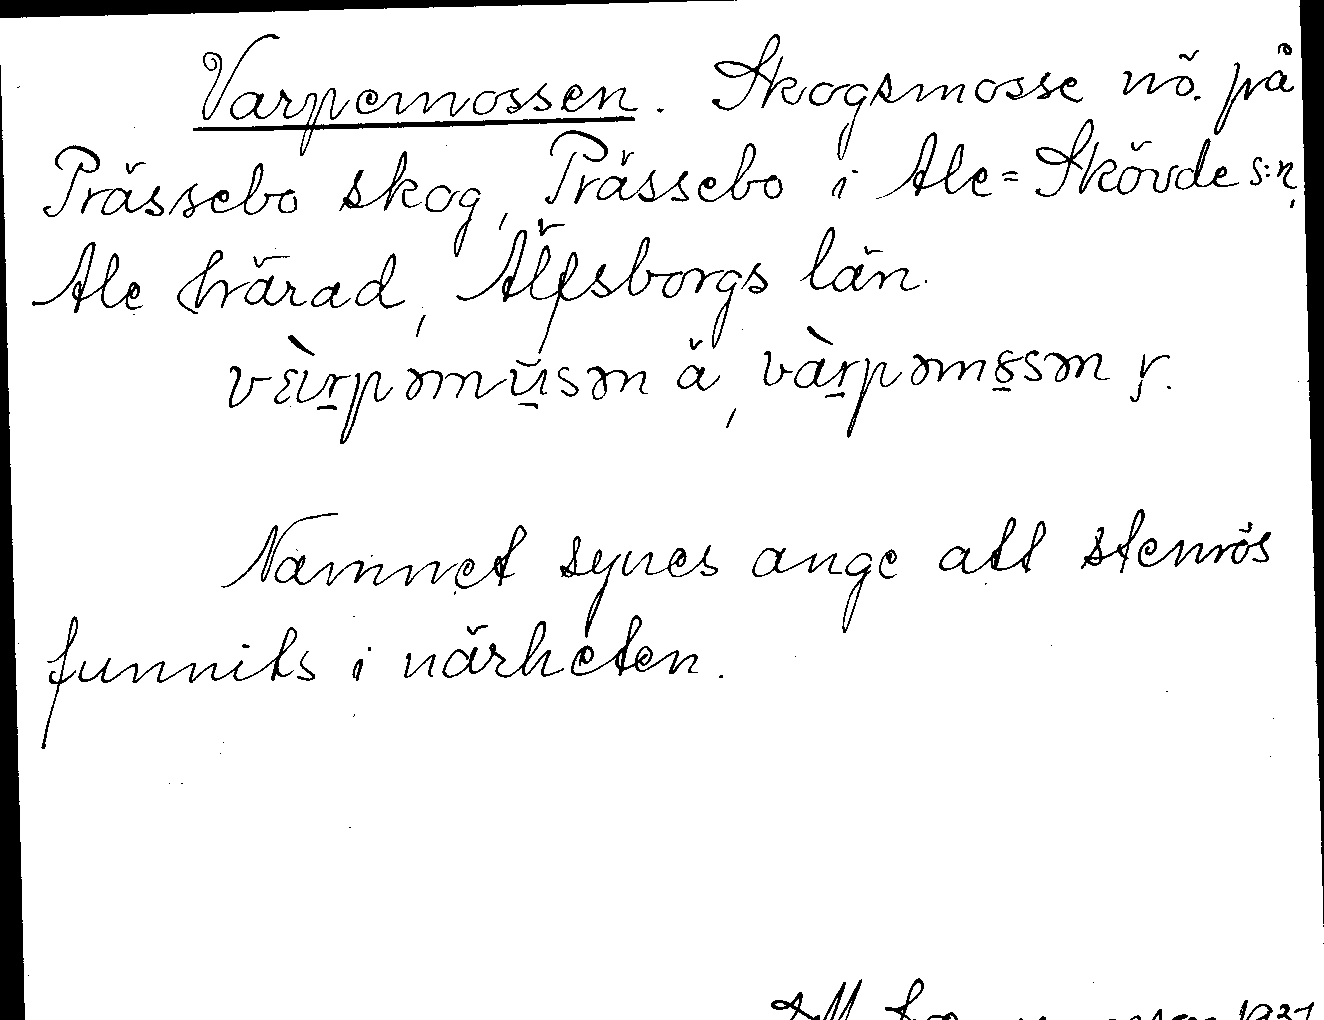 Varpemossen. Skogsmosse nö. på
Prässebo skog, Prässebo i Ale=Skövde s:n,
Ale härad, Älfsborgs län.
ä, y.
Namnet synes ange att stenrös
funnits i närheten.
1931